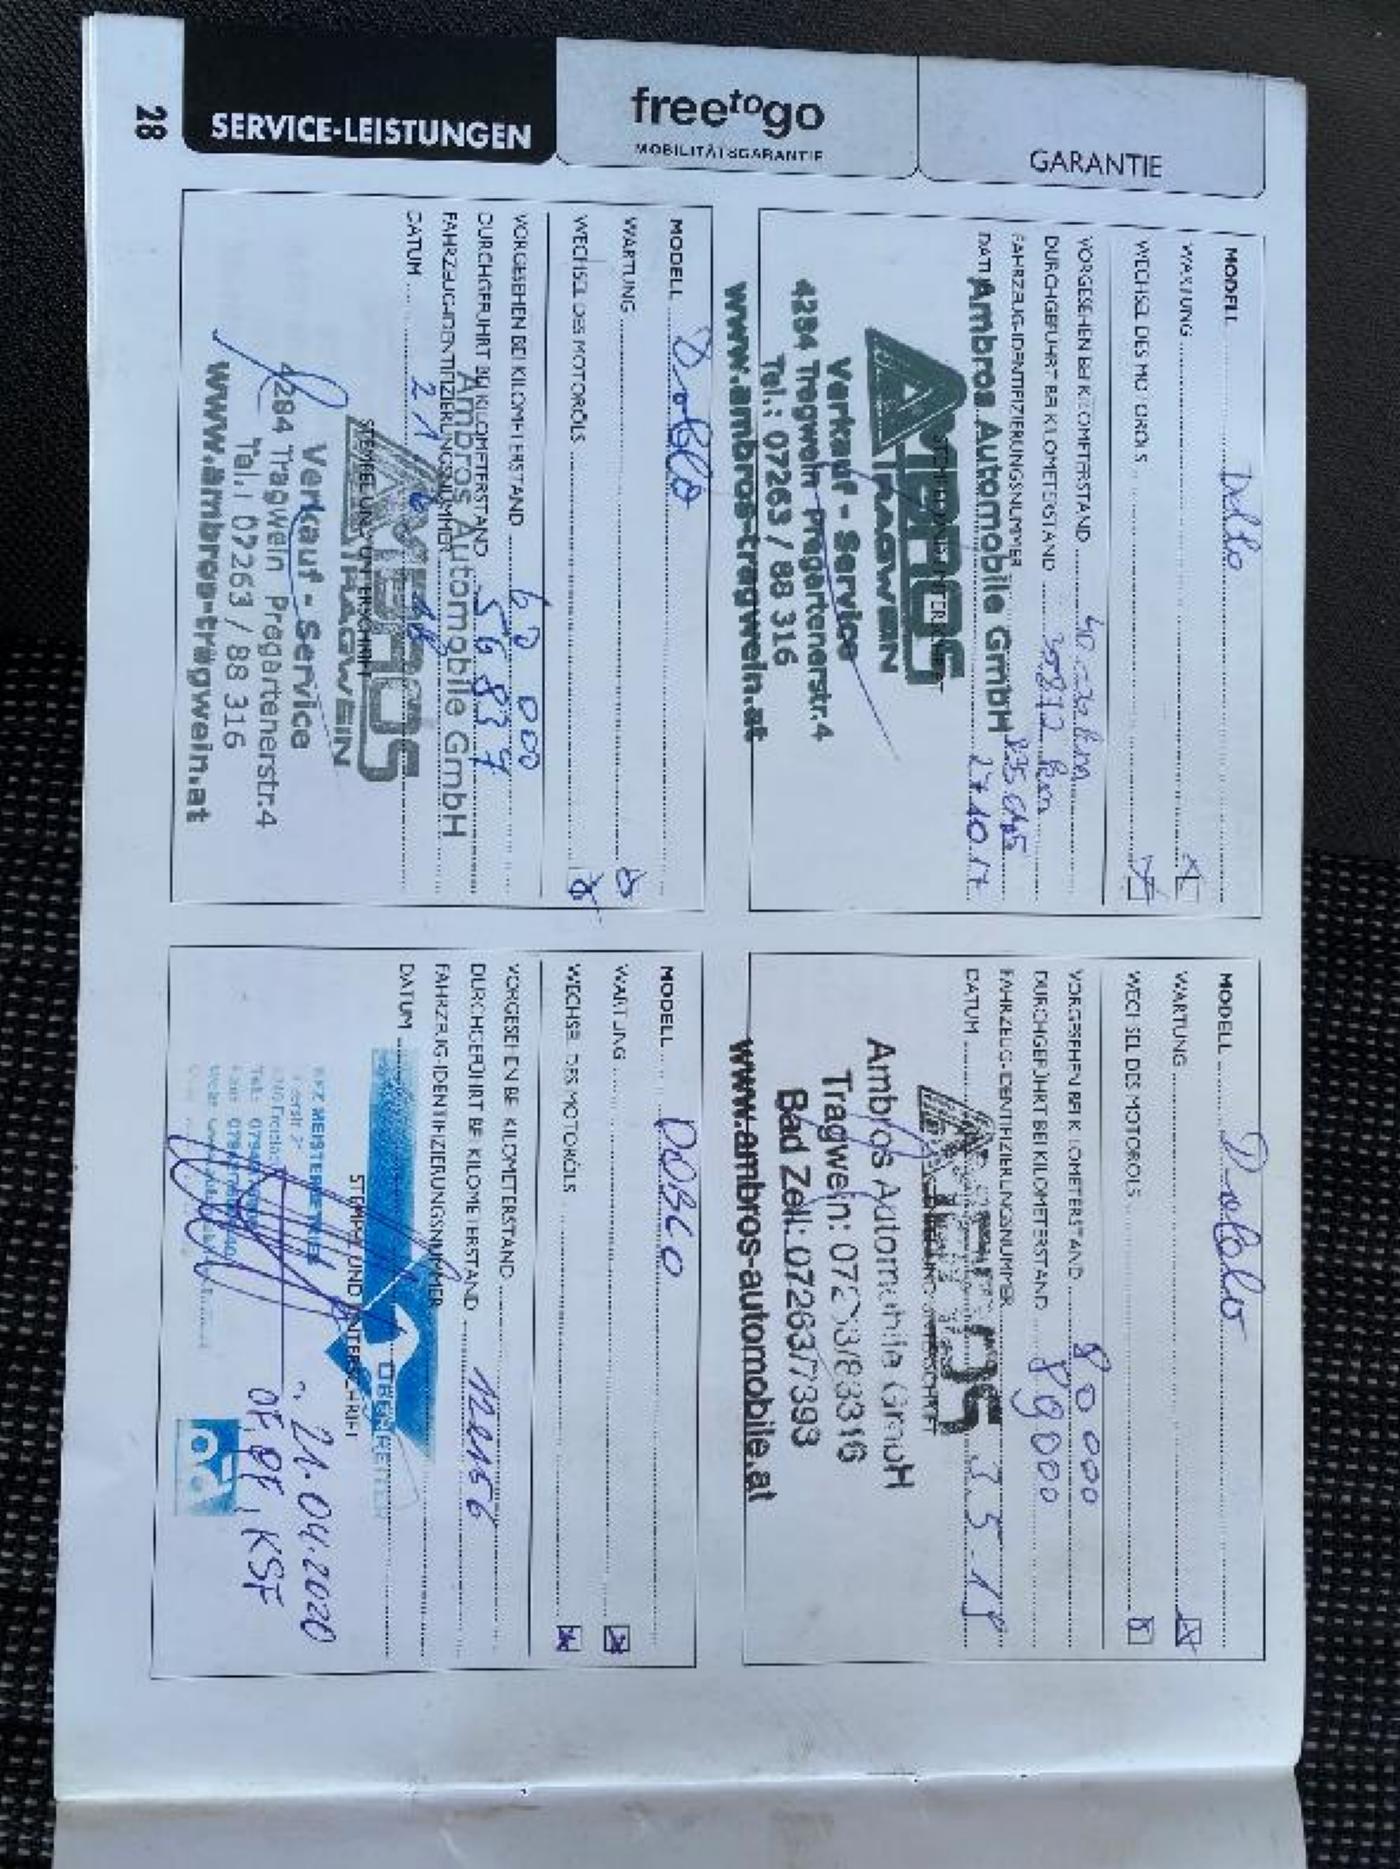 28
SERVICE-LEISTUNGEN
freetogo
MOBILITÄTSGARANTIE
GARANTIE
MODELL
WARTUNG
WECHSEL DES MOTORÖLS
VORGESEHEN BEI KILOMETERSTAND
DURCHGEFÜHRT BEI KILOMETERSTAND 39812 km
FAHRZEUG-IDENTIFIZIERUNGSNUMMER
DATUM 27.10.17
Ambros Automobile GmbH
AMBROS
TRAGWEIN
Verkauf - Service
4284 Tragwein Pregartenerstr.4
Tel.: 07263 / 88 316
www.ambros-tragwein.at
MODELL Doblo
WARTUNG
WECHSEL DES MOTORÖLS
VORGESEHEN BEI KILOMETERSTAND 80 000
DURCHGEFÜHRT BEI KILOMETERSTAND 89000
FAHRZEUG-IDENTIFIZIERUNGSNUMMER
DATUM
AMBROS
Ambros Automobile GmbH
Tragwein: 07263/88316
Bad Zell: 07263/7393
www.ambros-automobile.at
MODELL Doblo
WARTUNG
WECHSEL DES MOTORÖLS
VORGESEHEN BEI KILOMETERSTAND 60 000
DURCHGEFÜHRT BEI KILOMETERSTAND 56837
FAHRZEUG-IDENTIFIZIERUNGSNUMMER
DATUM
Ambros Automobile GmbH
AMBROS
TRAGWEIN
STEMPEL UND UNTERSCHRIFT
Verkauf - Service
4284 Tragwein Pregartenerstr.4
Tel.: 07263 / 88 316
www.ambros-tragwein.at
MODELL DOBLO
WARTUNG
WECHSEL DES MOTORÖLS
VORGESEHEN BEI KILOMETERSTAND
DURCHGEFÜHRT BEI KILOMETERSTAND
FAHRZEUG-IDENTIFIZIERUNGSNUMMER
DATUM
STEMPEL UND UNTERSCHRIFT
KFZ MEISTERBETRIEB
21.04.2020
KSF
ad